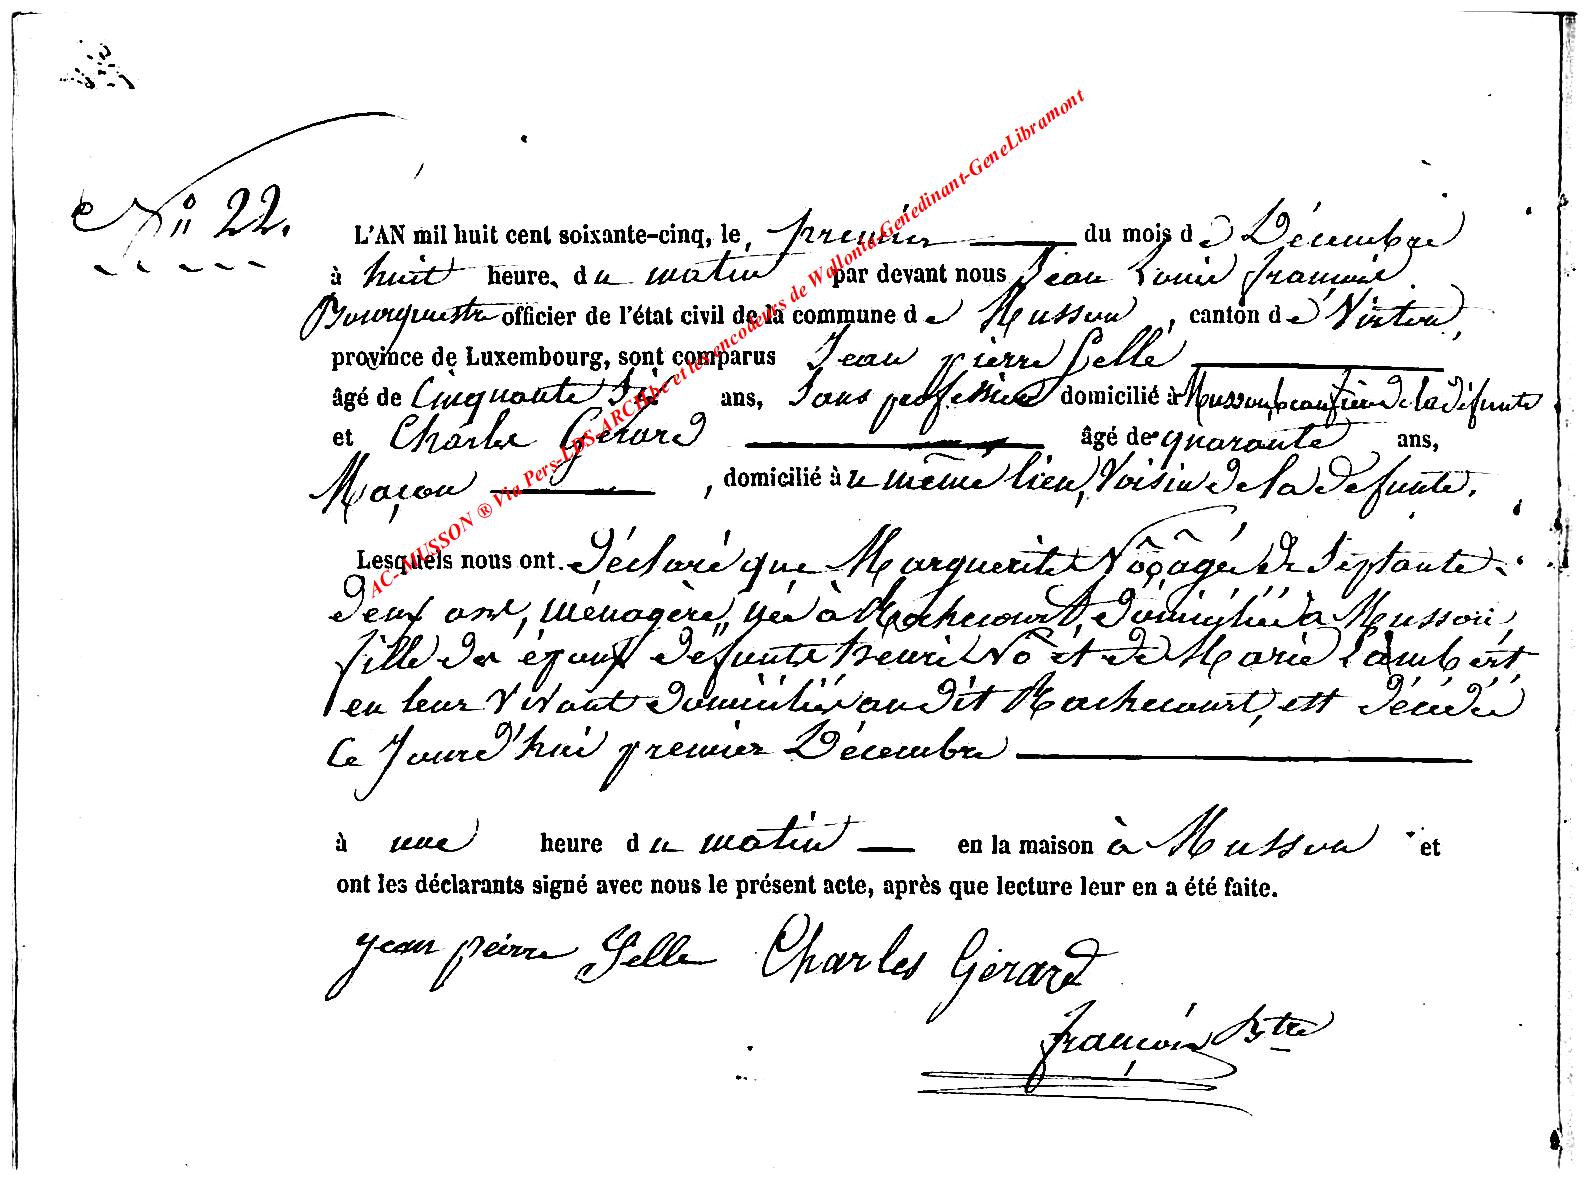 No 22.
L'AN mil huit cent soixante-cinq, le premier du mois de Décembre
à huit heure, du matin par devant nous Jean Louis françois
Bourgmestre officier de l'état civil de la commune de Musson, canton de Virton,
province de Luxembourg, sont comparus Jean pierre Gellé
âgé de Cinquante Six ans, Sans profession domicilié à Musson, beaufrère de la défunte
et Charle Gérard âgé de quarante ans,
Maçon, domicilié au même lieu, Voisin de la défunte.
Lesquels nous ont Déclaré que Marguerite Nô, âgée de Septante
deux ans, ménagère, née à Rachecourt, domiciliée à Musson,
fille des époux défunts henri Nô et de Marie Lambert,
en leur vivant domiciliés au dit Rachecourt, est décédée
Ce Jourd'hui premier Décembre
à une heure du matin en la maison à Musson et
ont les déclarants signé avec nous le présent acte, après que lecture leur en a été faite.
jean peirre Gelle Charles Gérard
françois Bstre
AC-MUSSON ® Via Pers-LDS-ARCH be et les encodeurs de Wallonia-Genedinant-GeneLibramont